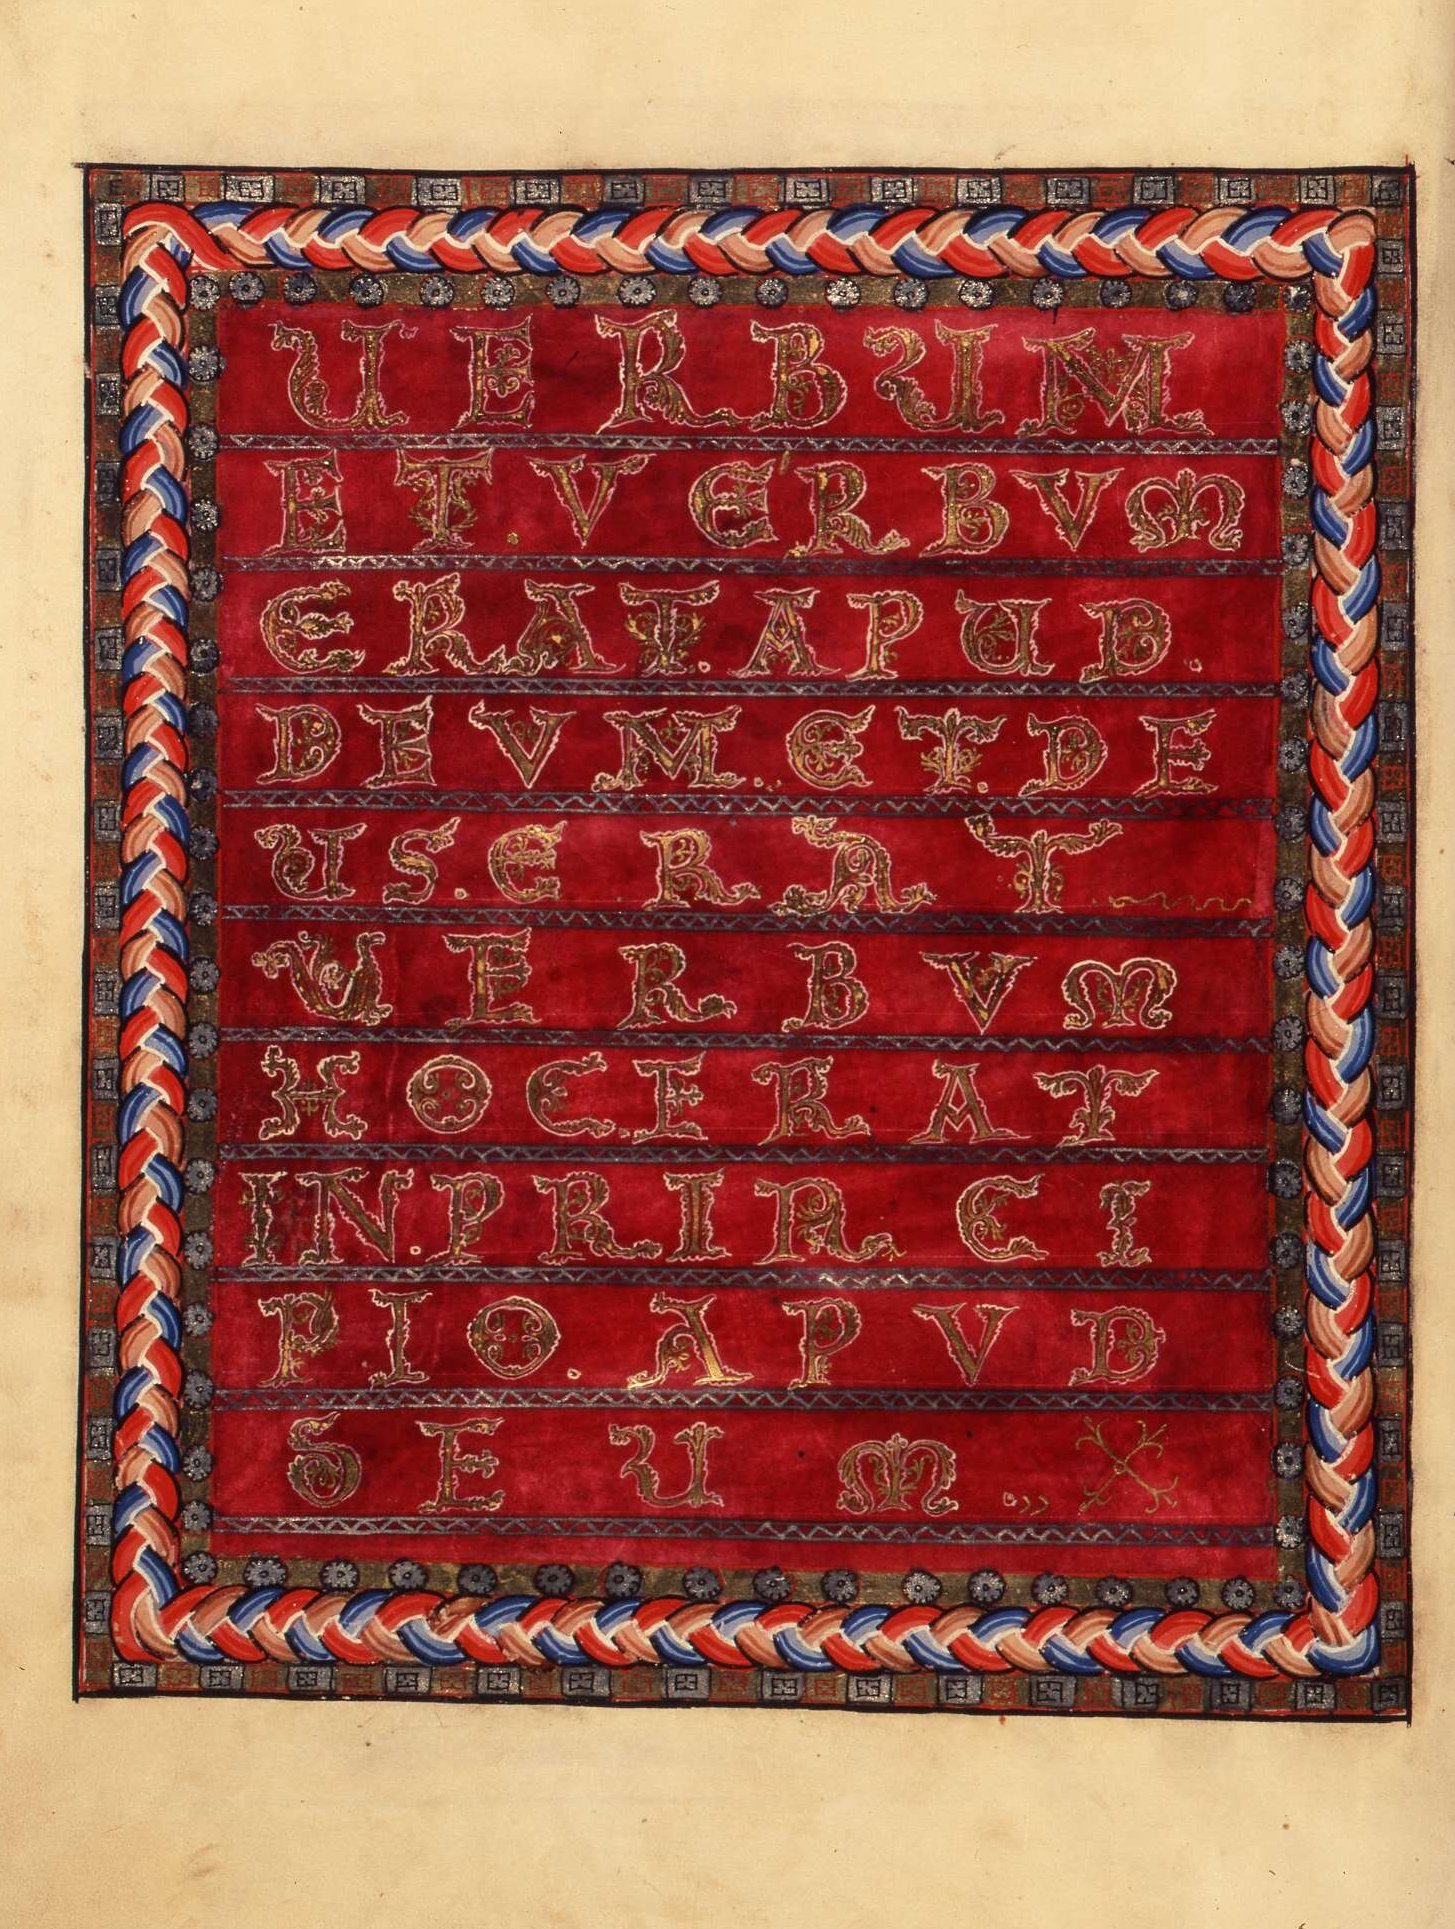 UERBUM
ET.VERBVM
ERAT.APUD.
DEVM.ET.DE
US.ERAT
UERBVM
HOC.ERAT
IN.PRINCI
PIO.APVD
DEUM